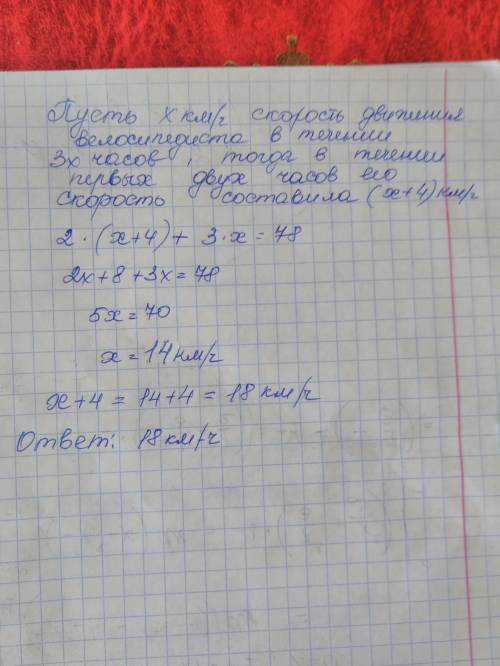 Пусть х км/ч скорость движения
велосипедиста в течении
3х часов, тогда в течении
первых двух часов его
скорость составила (х+4) км/ч
2·(х+4)+ 3·х=78
2х+8+3х=78
5х=70
х=14 км/ч
х+4 = 14+4 = 18 км/ч
Ответ: 18 км/ч